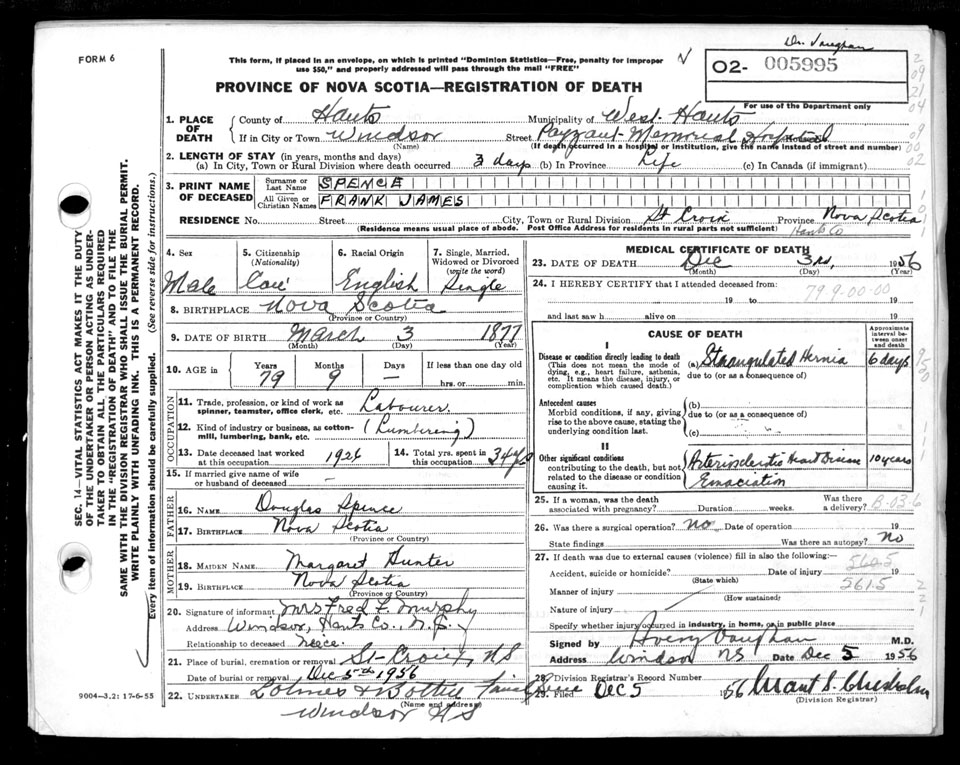 Dr. Vaughan
FORM 6
This form, if placed in an envelope, on which is printed "Dominion Statistics—Free, penalty for improper
use $50," and properly addressed will pass through the mail "FREE"
O2- 005995
For use of the Department only
PROVINCE OF NOVA SCOTIA—REGISTRATION OF DEATH
1. PLACE OF DEATH
County of Hants Municipality of West-Hants
If in City or Town Windsor Street Payzant-Memorial Hospital
(Name) (If death occurred in a hospital or institution, give the name instead of street and number)
2. LENGTH OF STAY (in years, months and days)
(a) In City, Town or Rural Division where death occurred 3 days (b) In Province Life (c) In Canada (if immigrant)
3. PRINT NAME OF DECEASED
Surname or Last Name SPENCE
All Given or Christian Names FRANK JAMES
RESIDENCE No. Street City, Town or Rural Division St Croix Province Nova Scotia
(Residence means usual place of abode. Post Office Address for residents in rural parts not sufficient) Hants Co
4. Sex Male
5. Citizenship (Nationality)
6. Racial Origin English
7. Single, Married, Widowed or Divorced (write the word) Single
8. BIRTHPLACE Nova Scotia
(Province or Country)
9. DATE OF BIRTH March 3 1877
(Month) (Day) (Year)
10. AGE in Years 79 Months 9 Days — If less than one day old
hrs. or min.
OCCUPATION
11. Trade, profession or kind of work as spinner, teamster, office clerk, etc. Labourer
12. Kind of industry or business, as cotton-mill, lumbering, bank, etc. (Lumbering)
13. Date deceased last worked at this occupation 1926
14. Total yrs. spent in this occupation 34 yrs
15. If married give name of wife or husband of deceased –
FATHER
16. NAME Douglas Spence
17. BIRTHPLACE Nova Scotia
(Province or Country)
MOTHER
18. MAIDEN NAME Margaret Hunter
19. BIRTHPLACE Nova Scotia
(Province or Country)
20. Signature of informant Mrs Fred F. Murphy
Address Windsor, Hants Co., N.S.
Relationship to deceased neice.
21. Place of burial, cremation or removal St-Croix, NS
Date of burial or removal Dec 5th 1956
22. UNDERTAKER
(Name and address)
Windsor N S
9004—3,2: 17-6-55
MEDICAL CERTIFICATE OF DEATH
23. DATE OF DEATH Dec 3rd, 1956
(Month) (Day) (Year)
24. I HEREBY CERTIFY that I attended deceased from:
79-9-00-00
19 to 19
and last saw h alive on 19
CAUSE OF DEATH
Approximate interval between onset and death
I
Disease or condition directly leading to death
(This does not mean the mode of dying, e.g., heart failure, asthenia, etc. It means the disease, injury, or complication which caused death.)
(a) Strangulated Hernia 6 days
due to (or as a consequence of)
Antecedent causes
Morbid conditions, if any, giving rise to the above cause, stating the underlying condition last.
(b)
due to (or as a consequence of)
(c)
II
Other significant conditions
contributing to the death, but not related to the disease or condition causing it.
Arteriosclerotic Heart Disease 10 years
Emaciation
25. If a woman, was the death associated with pregnancy? Duration weeks. Was there a delivery? B-036
26. Was there a surgical operation? no Date of operation 19
State findings Was there an autopsy? No
27. If death was due to external causes (violence) fill in also the following:—
Accident, suicide or homicide? Date of injury 19
(State which)
Manner of injury 561.5
(How sustained)
Nature of injury
Specify whether injury occurred in industry, in home, or in public place
Signed by Avery Vaughan M.D.
Address Windsor NS Date Dec 5 1956
28. Division Registrar's Record Number
29. Filed Dec 5 1956 Grant S. Chisholm
(Division Registrar)
SEC. 14—VITAL STATISTICS ACT MAKES IT THE DUTY
OF THE UNDERTAKER OR PERSON ACTING AS UNDER-
TAKER TO OBTAIN ALL THE PARTICULARS REQUIRED
IN THE "REGISTRATION OF DEATH" AND TO FILE THE
SAME WITH THE DIVISION REGISTRAR WHO SHALL ISSUE THE BURIAL PERMIT.
WRITE PLAINLY WITH UNFADING INK. THIS IS A PERMANENT RECORD.
Every item of information should be carefully supplied. (See reverse side for instructions.)